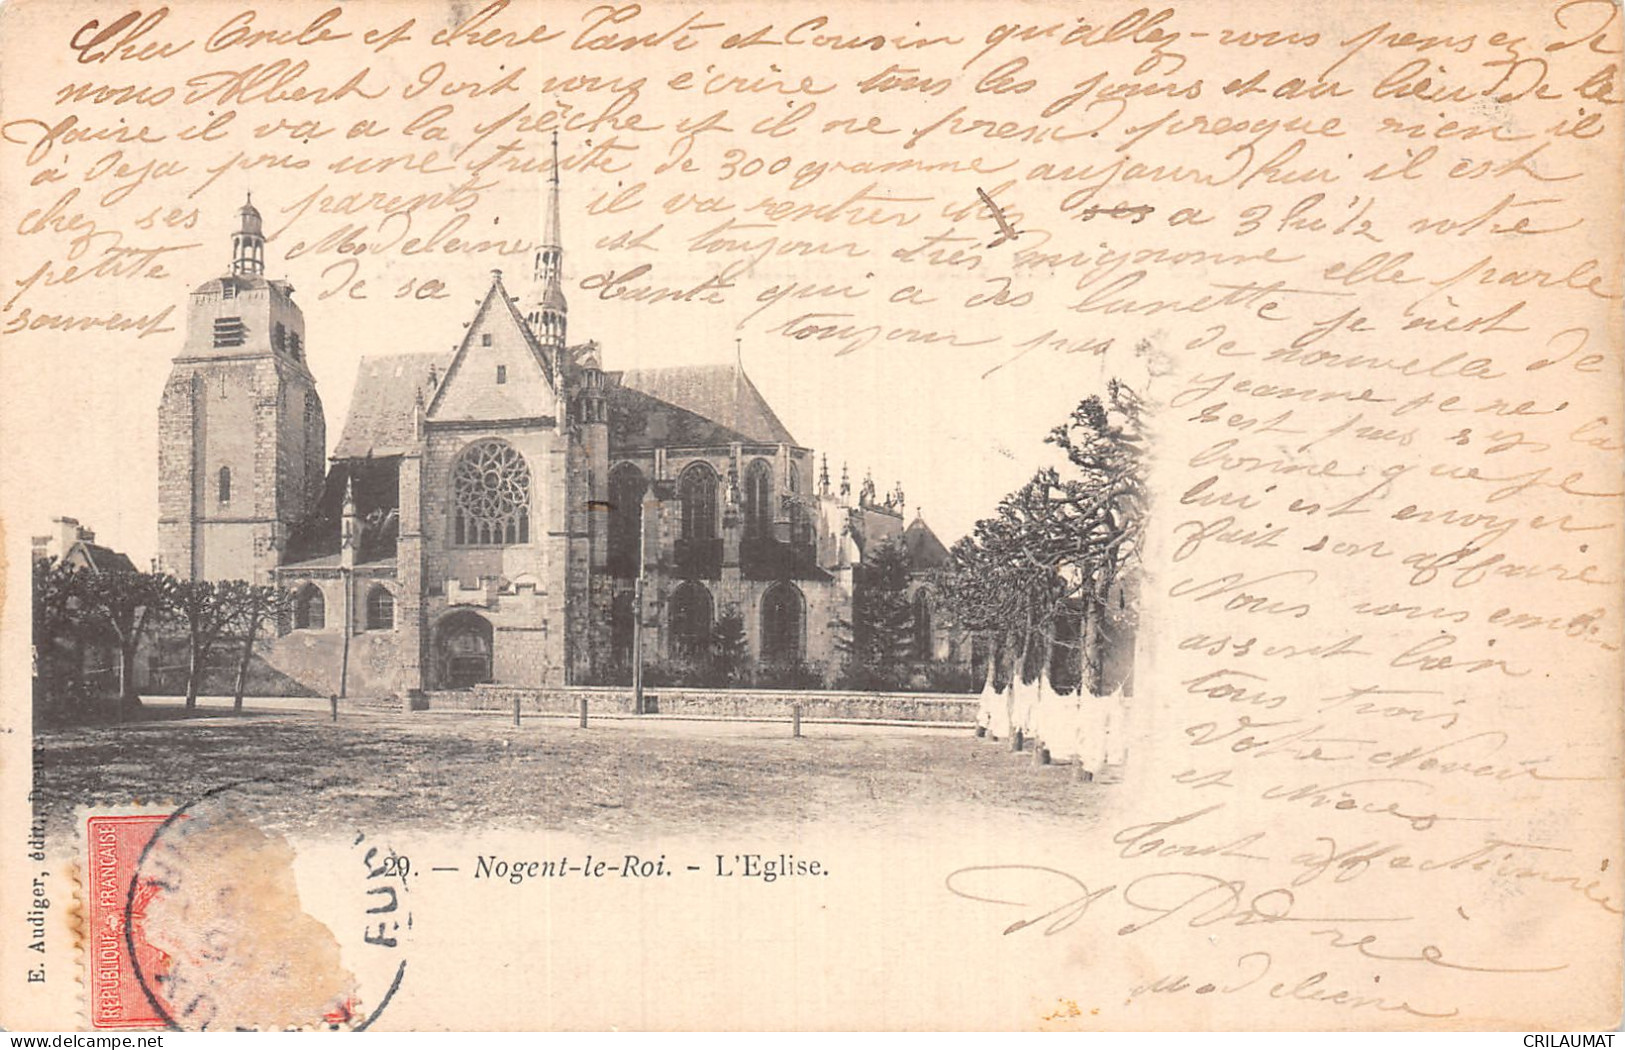 Cher Oncle et chere Tante et Cousin qu'allez-vous pensez de
nous Albert doit vous écrire tous les jours et au lieu de le
faire il va a la pêche et il ne prend presque rien il
à deja pris une truite de 300 gramme aujourd'hui il est
chez ses parents il va rentrer a 3 h 1/2 votre
petite Madeleine est toujour très mignonne elle parle
souvent de sa tante qui a des lunette je n'est
toujour pas de nouvelle de
Jeanne je ne
s'est pas s'y la
bonne que je
lui est envoyer
fait son affaire
Nous vous emb-
asseret bien
tous trois
Votre Neveu
et Nièces
tout affectionnée
Madeleine
29. — Nogent-le-Roi. - L'Eglise.
E. Audiger, édit.,
REPUBLIQUE FRANÇAISE
CRILAUMAT